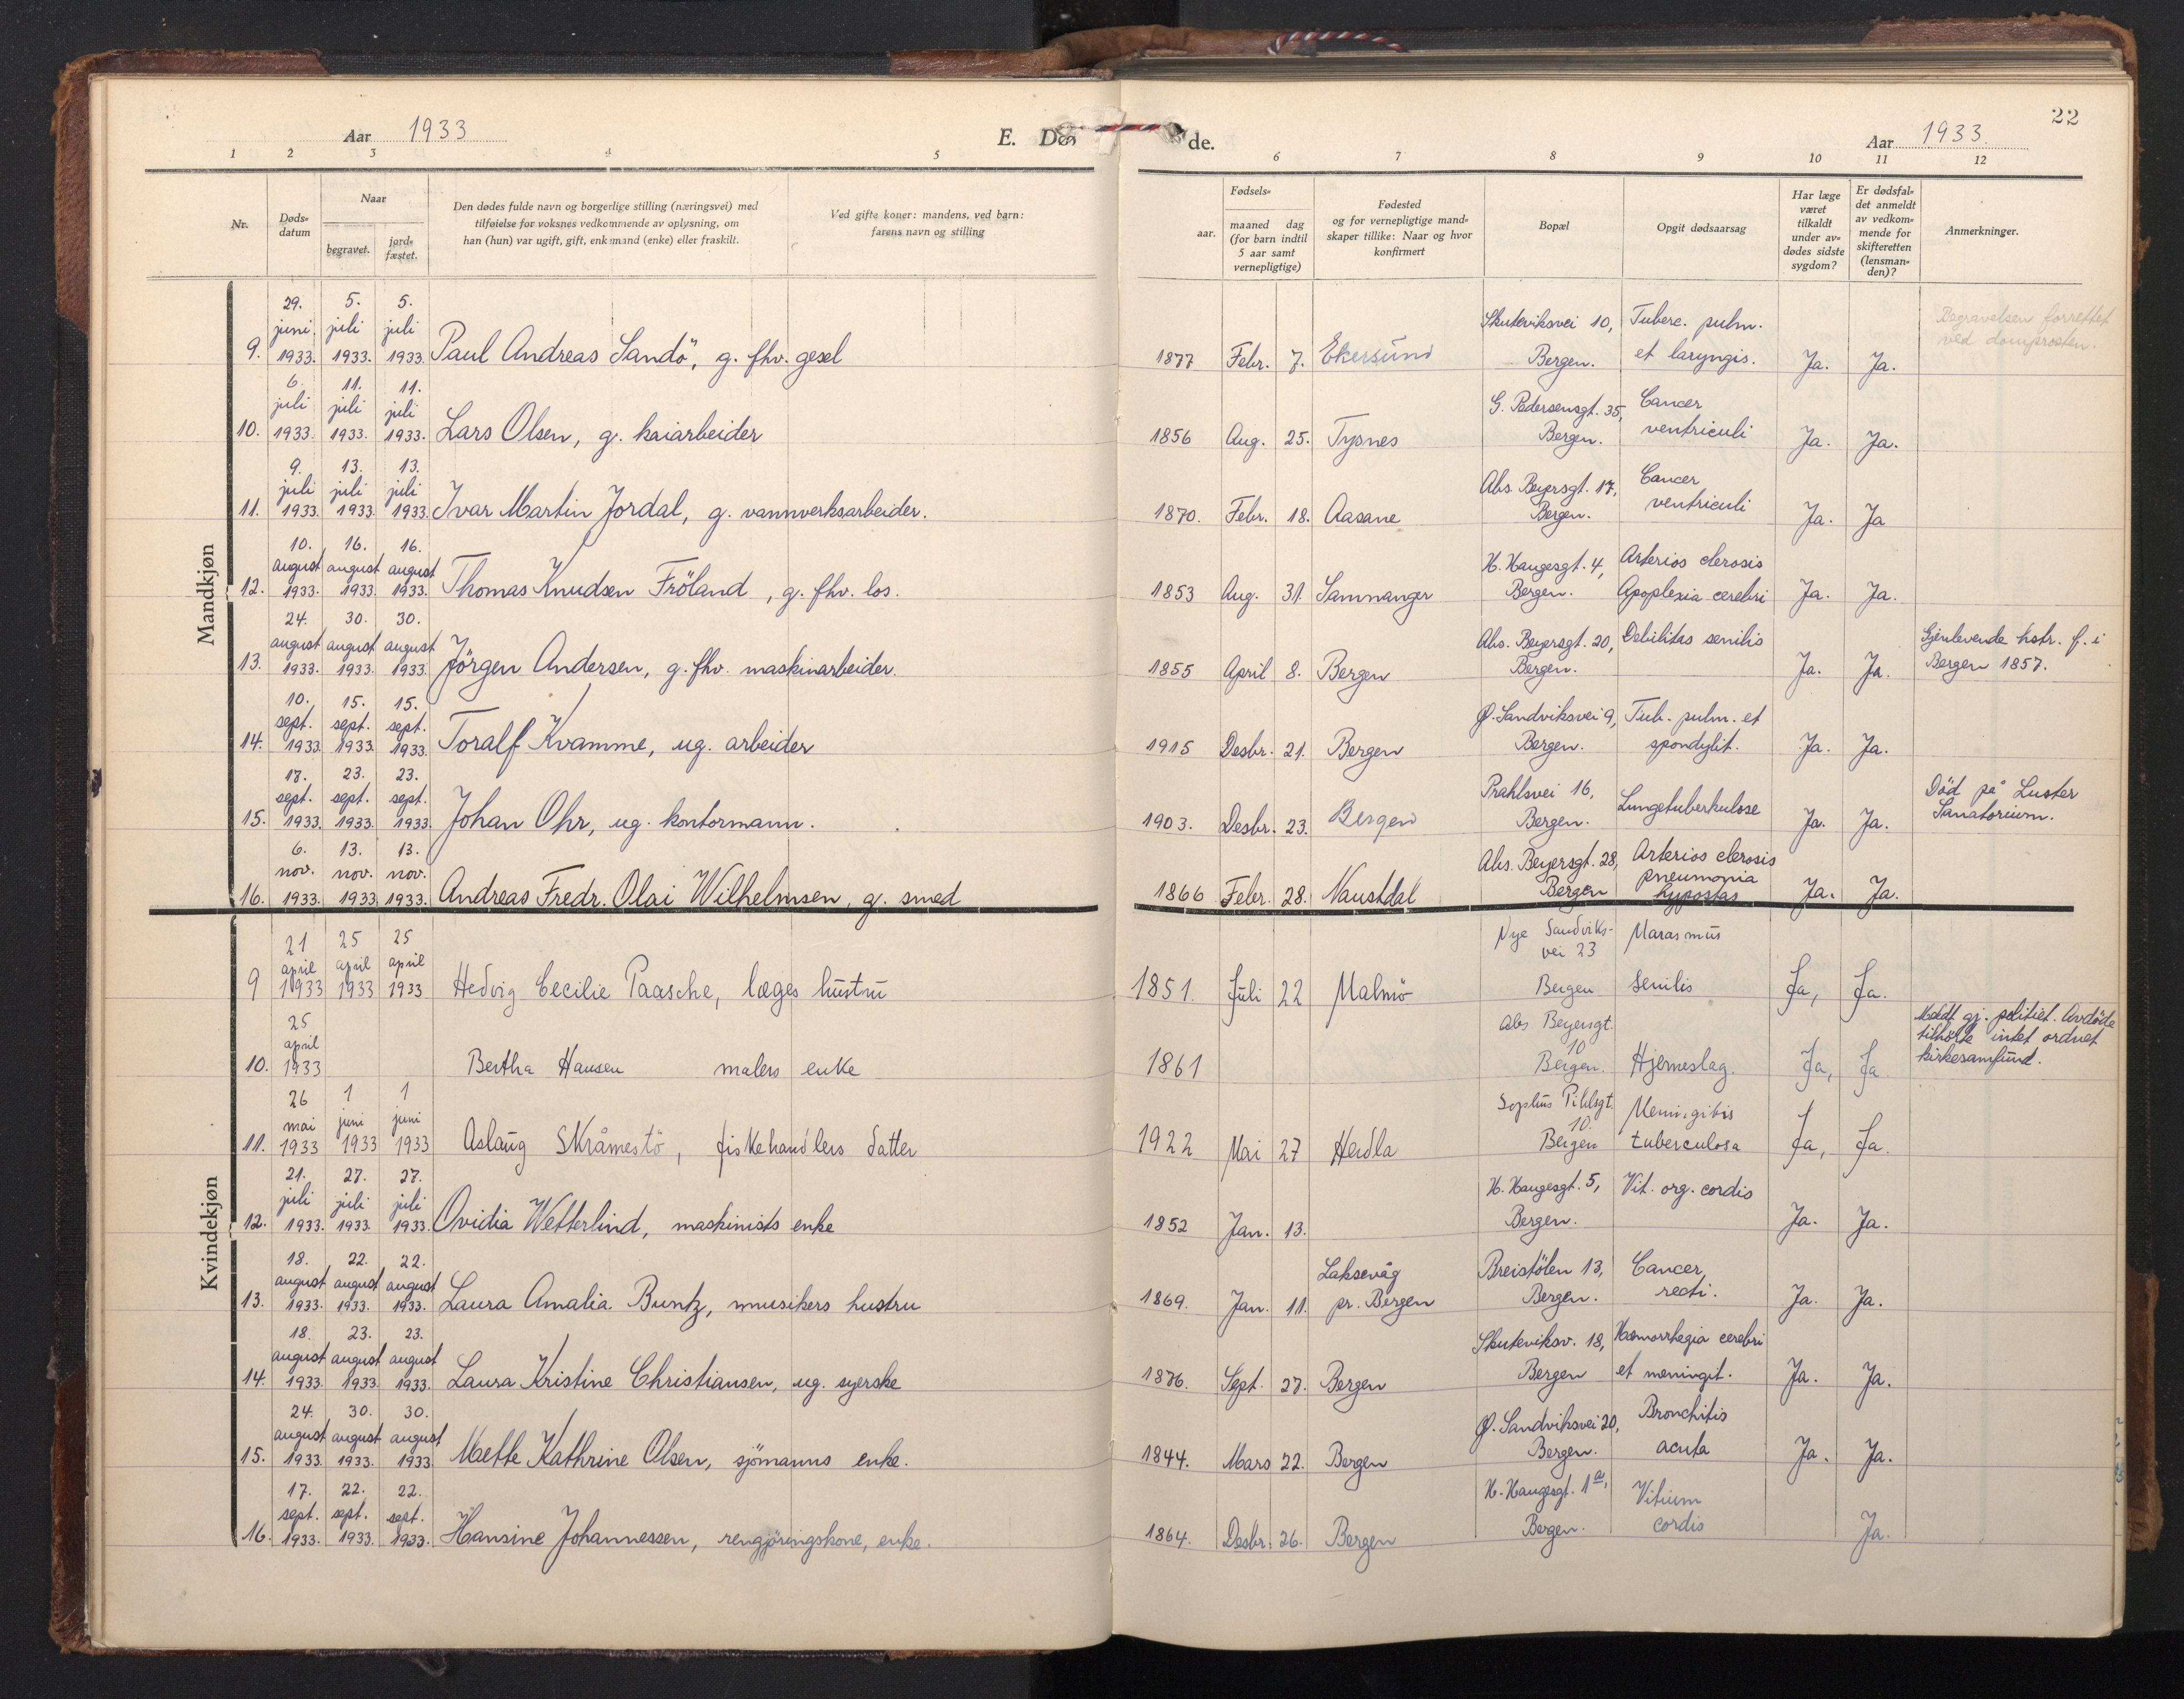 Aar 1933
E. Dø de.
22
Aar 1933.
1 2 3 4 5 6 7 8 9 10 11 12
Nr.
Døds-
datum
Naar
begravet.
jord-
fæstet.
Den dødes fulde navn og borgerlige stilling (næringsvei) med
tilføielse for voksnes vedkommende av oplysning, om
han (hun) var ugift, gift, enkemand (enke) eller fraskilt.
Ved gifte koner: mandens, ved barn:
farens navn og stilling
Fødsels-
aar.
maaned dag
(for barn indtil
5 aar samt
vernepligtige)
Fødested
og for vernepligtige mand-
skaper tillike: Naar og hvor
konfirmert
Bopæl
Opgit dødsaarsag
Har læge
været
tilkaldt
under av-
dødes sidste
sygdom?
Er dødsfal-
det anmeldt
av vedkom-
mende for
skifteretten
(lensman-
den)?
Anmerkninger.
Mandkjøn
29. 5. 5. Skuteviksvei 10, Tuberc. pulm. Begravelsen forrettet
juni juli juli ved domprosten.
9. 1933. 1933. 1933. Paul Andreas Sandö, g. fhv. gesel 1877 Febr. 7. Ekersund Bergen. et laryngis. Ja. Ja.
6. 11. 11. G. Pedersensgt. 35, Cancer
juli juli juli
10. 1933. 1933. 1933. Lars Olsen, g. kaiarbeider 1856 Aug. 25. Tysnes Bergen. ventriculi Ja. Ja.
9. 13. 13. Abs. Beyersgt. 17, Cancer
juli juli juli
11. 1933. 1933. 1933. Ivar Martin Jordal, g. vannverksarbeider. 1870. Febr. 18. Aasane Bergen. ventriculi Ja. Ja
10. 16. 16. H. Haugesgt. 4, Arterios clerosis
august august august
12. 1933. 1933. 1933. Thomas Knudsen Fröland, g. fhv. los. 1853 Aug. 31. Samnanger Bergen. Apoplexia cerebri Ja. Ja.
24. 30. 30. Abs. Beyersgt. 20, Debilitas senilis Gjenlevende hstr. f. i
august august august
13. 1933. 1933. 1933. Jörgen Andersen, g. fhv. maskinarbeider. 1855 April 8. Bergen Bergen. Ja. Ja. Bergen 1857.
10. 15. 15. Ø. Sandviksvei 9, Tub. pulm. et
sept. sept. sept.
14. 1933. 1933. 1933. Toralf Kvamme, ug. arbeider 1915 Desbr. 21. Bergen Bergen. spondylit. Ja. Ja.
17. 23. 23. Prahlsvei 16, Lungetuberkulose Död på Luster
sept. sept. sept.
15. 1933. 1933. 1933. Johan Ohr, ug. kontormann. 1903. Desbr. 23. Bergen Bergen. Ja. Ja. Sanatorium.
6. 13. 13. Abs. Beyersgt. 28, Arterios clerosis
nov. nov. nov. pneumonia
16. 1933. 1933. 1933. Andreas Fredr. Olai Wilhelmsen, g. smed 1866 Febr. 28. Naustdal Bergen hypostas Ja. Ja.
Kvindekjøn
21 25 25 Nye Sandviks- Marasmus
april april april vei 23
9 1933 1933 1933 Hedvig Cecilie Paasche, læges hustru 1851. Juli 22 Malmö Bergen senilis Ja, Ja.
25 Abs Beyersgt. Meldt gj. politiet. Avdöde
april 10 tilhörte intet ordnet
10. 1933 Bertha Hansen malers enke 1861 Bergen. Hjerneslag. Ja, Ja kirkesamfund.
26 1 1 Sophus Pihlsgt. Meningitis
mai juni juni 10.
11. 1933 1933 1933 Aslaug Skråmestö, fiskehandlers datter 1922 Mai 27 Herdla Bergen tuberculosa Ja, Ja.
21. 27. 27. H. Haugesgt. 5, Vit. org. cordis
juli juli juli
12. 1933. 1933. 1933. Ovidia Wetterlind, maskinists enke 1852 Jan. 13. Bergen. Ja. Ja.
18. 22. 22. Laksevåg Breistölen 13, Cancer
august august august
13. 1933. 1933. 1933. Laura Amalia Buntz, musikers hustru 1869. Jan. 11. pr. Bergen Bergen. recti. Ja. Ja.
18. 23. 23. Skuteviksv. 18, Hæmorrhagia cerebri
august august august
14. 1933. 1933. 1933. Laura Kristine Christiansen, ug. syerske 1876. Sept. 27. Bergen Bergen et meningit. Ja. Ja.
24. 30. 30. Ø. Sandviksvei 20, Bronchitis
august august august
15. 1933. 1933. 1933 Mette Kathrine Olsen, sjömanns enke. 1844. Mars 22. Bergen Bergen. acuta Ja. Ja.
17. 22. 22. H. Haugesgt. 1a, Vitium
sept. sept. sept.
16. 1933. 1933. 1933. Hansine Johannessen, rengjöringskone, enke. 1864. Desbr. 26. Bergen Bergen. cordis Ja.